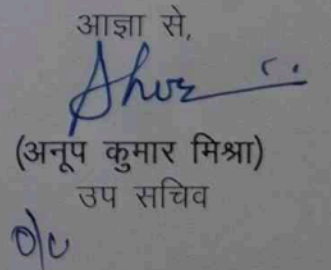 आज्ञा से,
(अनूप कुमार मिश्रा)
उप सचिव